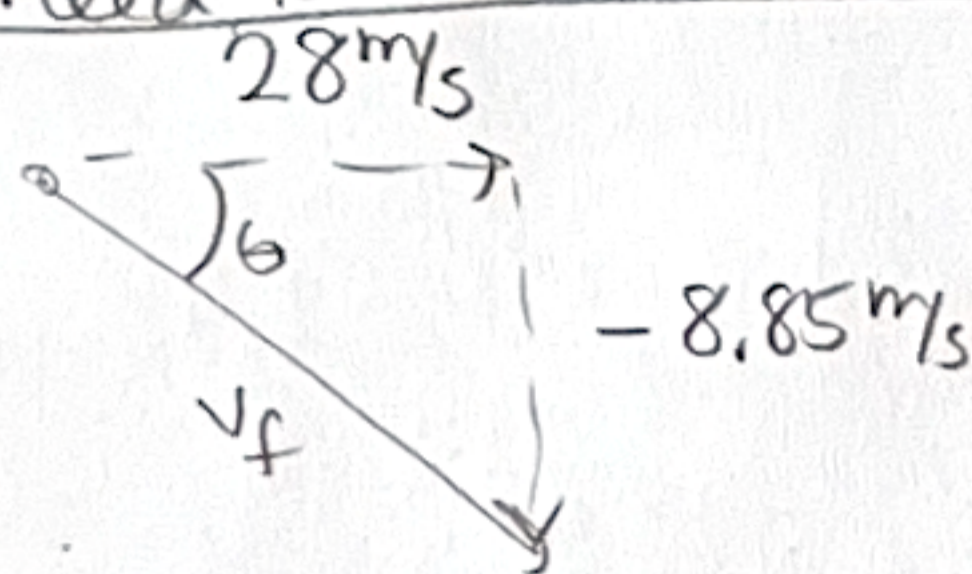 28 m/s
θ
- 8.85 m/s
vf